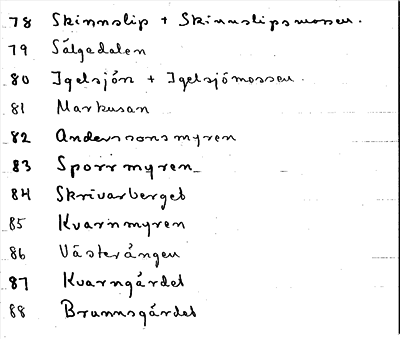 78 Skinnslip + Skinnslipsmossen.
79 Sälgadalen
80 Igelsjön + Igelsjömossen.
81 Markusan
82 Anderssonsmyren
83 Sporrmyren
84 Skrivarberget
85 Kvarnmyren
86 Västerängen
87 Kvarngärdet
88 Brunnsgärdet